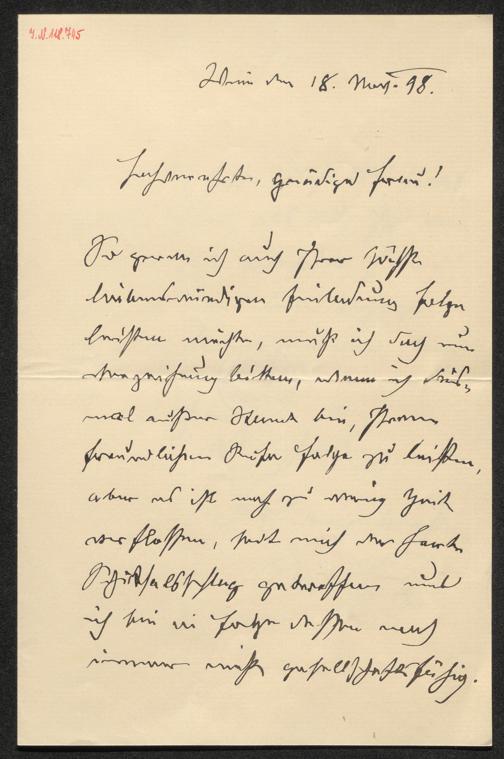 J.N. 118.745
Wien den 18. Nov. 98.
Hochverehrte, gnädige Frau!
So gerne ich auch Ihrer höchst
liebenswürdigen Einladung Folge
leisten möchte, muß ich doch um
Verzeihung bitten, wenn ich dies-
mal außer Stande bin, Ihrem
freundlichen Rufe Folge zu leisten,
aber es ist noch zu wenig Zeit
verflossen, seit mich der harte
Schicksalsschlag getroffen und
ich bin in Folge dessen noch
immer nicht gesellschaftsfähig.